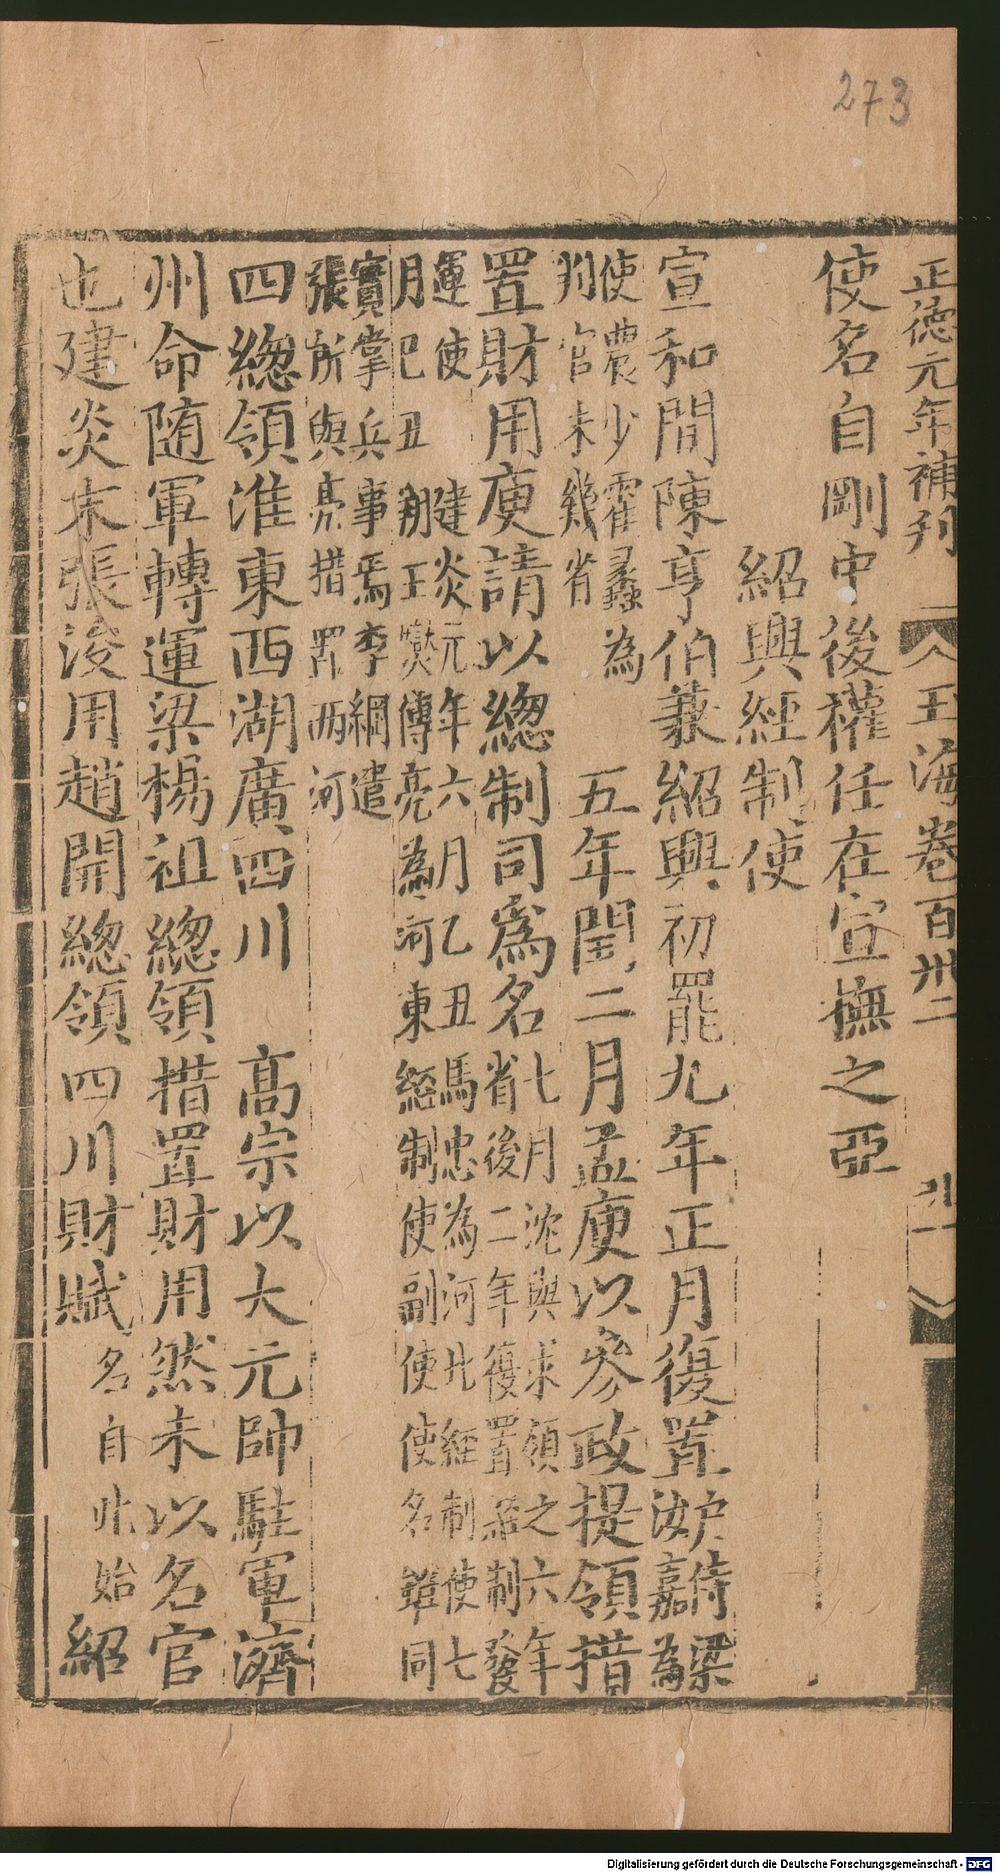 273
正德元年補刋 玉海卷百卅二 卅一
使名自剛中後權任在宣撫之亞
紹興經制使
宣和間陳亨伯兼紹興初罷九年正月復置戶侍梁汝嘉為
使農少霍蠡為判官未幾省 五年閏二月孟庾以參政提領措
置財用庾請以緫制司爲名七月沈與求領之六年省後二年復置經制發
運使 建炎元年六月乙丑馬忠為河北經制使七月己丑朔王𤓖傅亮為河東經制使副使使名雖同
實掌兵事焉李綱遣張所與亮措置两河
四緫領淮東西湖廣四川 髙宗以大元帥駐軍濟
州命随軍轉運梁楊祖緫領措置財用然未以名官
也建炎末張浚用趙開緫領四川財賦名自此始紹
Digitalisierung gefördert durch die Deutsche Forschungsgemeinschaft - DFG